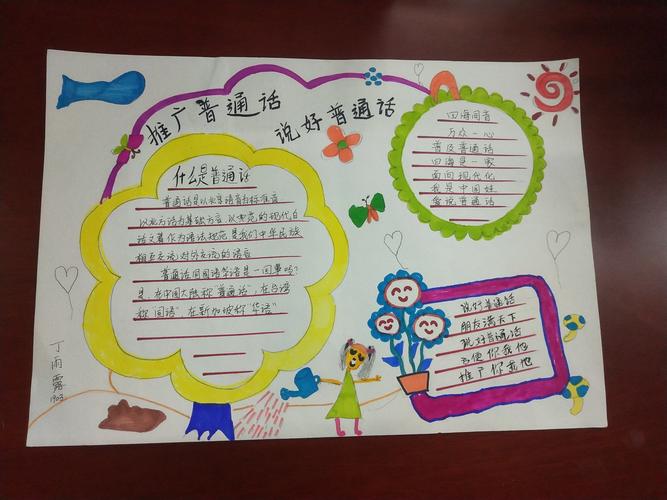 推广普通话
说好普通话
什么是普通话
普通话是以北京语音为标准音
以北方话为基础方言 以典范的现代白
话文著作为语法规范 是我们中华民族
相互交流对外交流的语音
普通话同国语华语是一回事吗?
是,在中国大陆称"普通话",在台湾
称"国语"在新加坡称"华语"
四海同音
万众一心
普及普通话
四海是一家
面向现代化
我是中国娃
爱说普通话
说好普通话
朋友满天下
说好普通话
方便你我他
推广你我他
丁雨露
1903